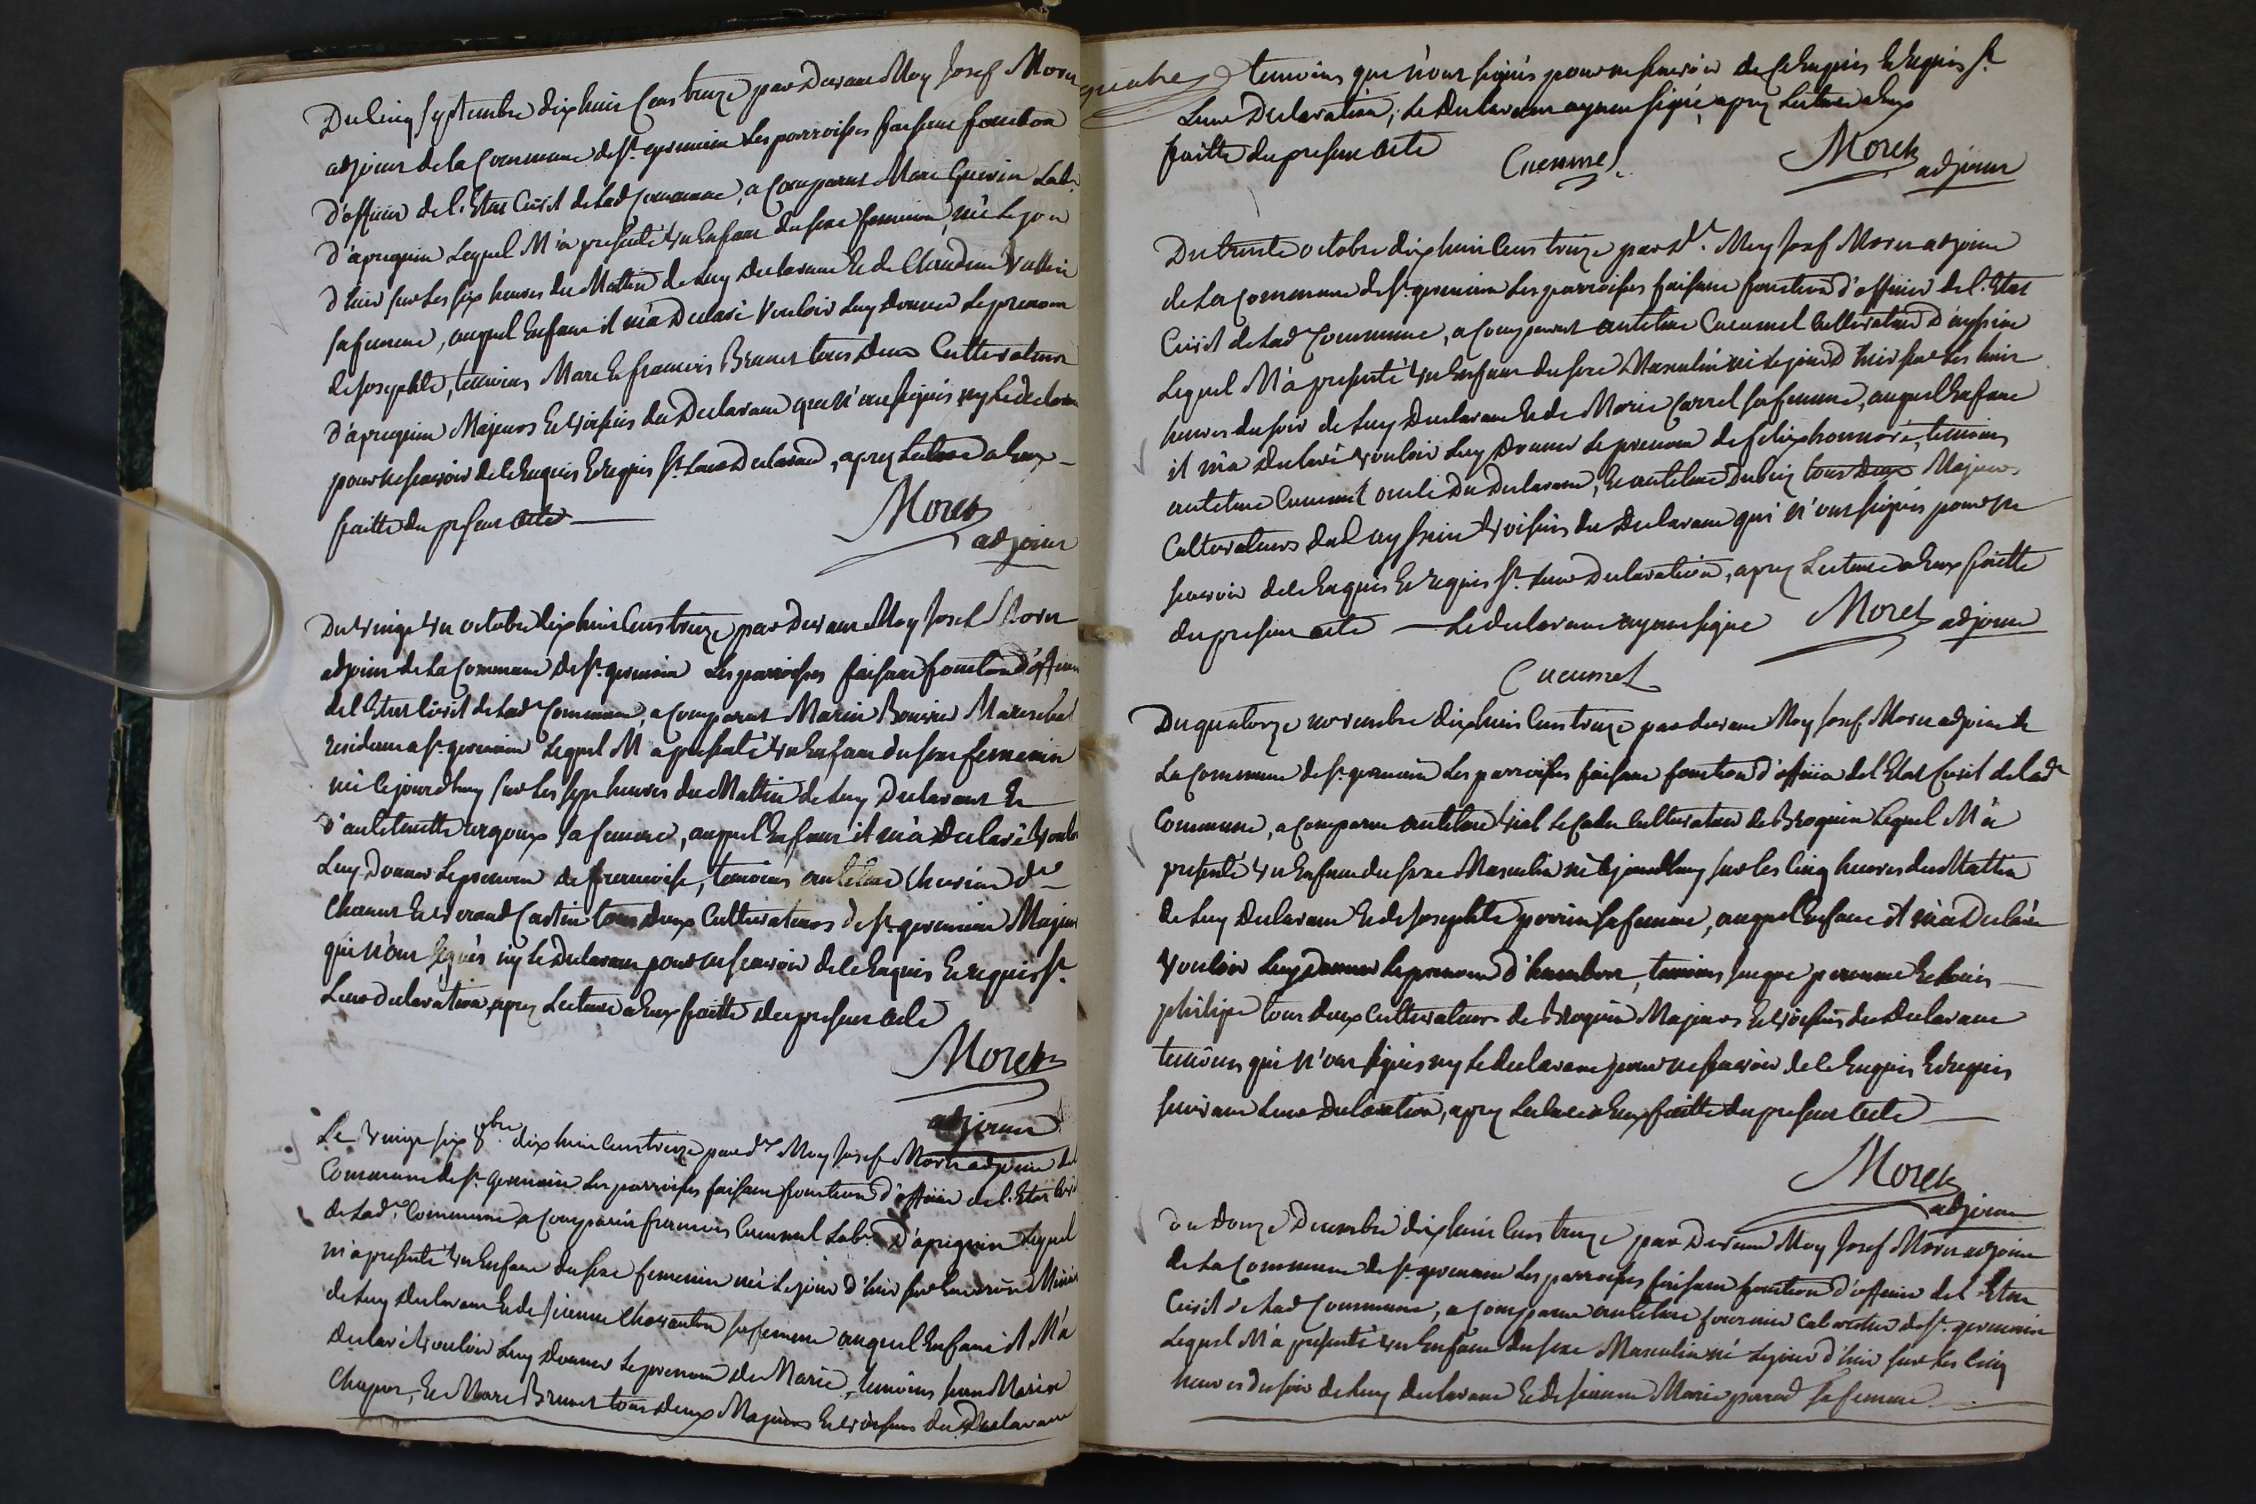 Du Cinq septembre dix huit Cens treize par Devant Moy Josef Moret
adjoint de la Commune de St. germain Les parroisses faisant fonction
d'officier de l'Etat Civil de lad. Commune, a Comparut Marc Guerin Labr.
d'apreguin Lequel M'a presenté un Enfant du sexe feminin, né Le jour
d'hier sur Les six heures du Mattin de Luy Declarant Et de Claudine Vallin
sa femme, auquel Enfant il m'a Declaré Vouloir Luy Donner Le prenom
de josephte, temoins Marc Et francois Brunet tous Deux Cultivateurs
d'apreguin Majeurs Et Voisins du Declarant qui n'ont signés ny Le declarant
pour ne scavoir de Ce Enquis Et Requis St. Leur Declaration, apres Lecture a Eux
faitte du present acte
Moret
adjoint
Du Vingt un octobre dix huit Cens treize par Devant Moy Josef Moret
adjoint de La Commune de St. germain Les parroisses faisant fonction d'officier
de l'Etat Civil de Lad. Commune, a Comparut Marin Bouvier Mareschal
resident a St. germain Lequel M'a presenté un Enfant du sexe femenin
né Ce jourdhuy sur Les sept heures du Mattin de Luy Declarant Et
d'antelmette ergoux sa femme, auquel Enfant il m'a Declaré Vouloir
Luy Donner Le prenom de francoise, temoins antelme Charian dt
Et Cartin tous Deux Cultivateurs de St. germain Majeurs
qui n'ont signés ny Le Declarant pour ne scavoir de Ce Enquis Et requis St.
Leur Declaration, apres Lecture a Eux faitte du present acte
Moret
adjoint
Le Vingt six 8bre. dix huit Cens treize par dt. Moy Josef Moret adjoint de la
Commune de St. germain Les parroisses faisant fonction d'officier de l'Etat Civil
de Lad. Commune a Comparut francois Cucumel Labr. d'apreguin Lequel
m'a presenté un Enfant du sexe femenin né Le jour d'hier sur Environ Minuit
de Luy Declarant Et de jeanne Charanton sa femme auquel Enfant il M'a
Declaré Vouloir Luy Donner Le prenom de Marie, temoins jean Marin
Chapot, Et Marc Brunet tous deux Majeurs Et Voisins du Declarant
quates temoins qui n'ont signés pour ne scavoir de Ce Enquis Et Requis St.
Leur Declaration, Le Declarant ayant signé, apres Lecture a Eux
faitte du present acte
Cucumel
Moret
adjoint
Du trente octobre dix huit Cens treize par dt. Moy Josef Moret adjoint
de La Commune de St. germain Les parroisses faisant fonction d'officier de l'Etat
Civil de Lad. Commune, a Comparut antelme Cucumel Cultivateur d'ayssin
Lequel M'a presenté un Enfant du sexe Masculin né Le jour d'hier sur Les huit
heures du soir de Luy Declarant Et de Marie Carrel sa femme, auquel Enfant
il m'a Declaré Vouloir Luy Donner Le prenom de felix honnoré, temoins
antelme Cucumel oncle Du Declarant, Et antelme Dubin tous Deux Majeurs
Cultivateurs Dud. ayssin Voisins du Declarant qui n'ont signés pour ne
scavoir de Ce Enquis Et requis St. Leur Declaration, apres Lecture a Eux faitte
du present acte — Le declarant ayant signé
Moret
adjoint
Cucumel
Du quatorze novembre dix huit Cens treize par devant Moy Josef Moret adjoint de
La Commune de St. germain Les parroisses faisant fonction d'officier de l'Etat Civil de lad.
Commune, a Comparut antelme Vial Le Cadet Cultivateur de Brognin Lequel M'a
presenté un Enfant du sexe Masculin né Ce jourdhuy sur les Cinq heures du Mattin
de Luy Declarant Et de josephte perrin sa femme, auquel Enfant il m'a Declaré
Vouloir Luy Donner Le prenom d'humbert, temoins jacque peronne Et Louis
philipe tous deux Cultivateurs de Brognin Majeurs Et Voisins du Declarant
temoins qui n'ont signés ny Le declarant pour ne scavoir de Ce Enquis Et requis
suivant Leur Declaration, apres Lecture a Eux faitte du present acte
Moret
adjoint
Du Douze Decembre dix huit Cens treize par Devant Moy Josef Moret adjoint
de La Commune de St. germain Les parroisses faisant fonction d'officier de l'Etat
Civil de Lad. Commune, a Comparut antelme fournier Cabaretier de St. germain
Lequel M'a presenté un Enfant du sexe Masculin né Le jour d'hier sur Les Cinq
heures du soir de Luy Declarant Et de jeanne Marie parrad sa femme